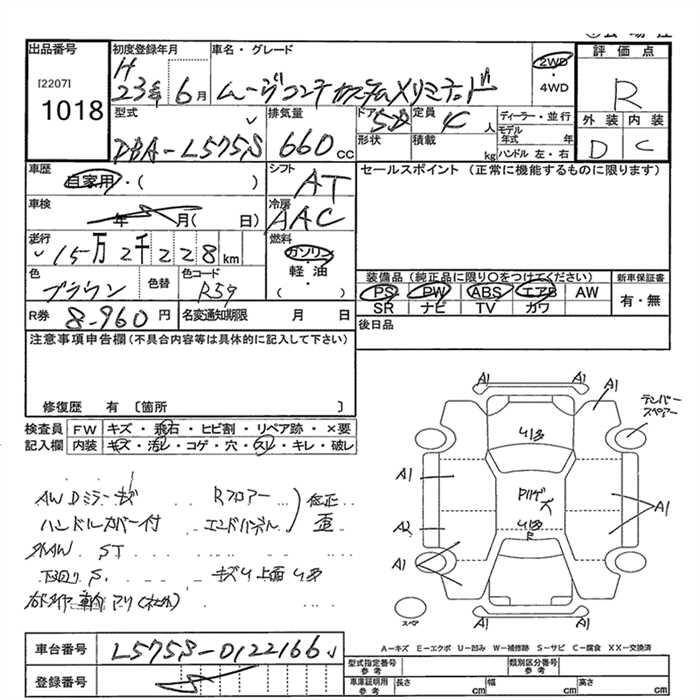 出品番号
[2207]
1018
初度登録年月
H
23年 6月
車名・グレード
ムーヴコンテ カスタムXリミテッド
2WD
・
4WD
評価点
R
外装 内装
D C
型式
DBA-L575S
排気量
660 cc
ドア
5D
形状
定員
人
積載
kg
ディーラー・並行
モデル年式 年
ハンドル 左・右
車歴
自家用・( )
シフト
AT
セールスポイント (正常に機能するものに限ります)
車検
年 月( 日)
冷房
AAC
走行
15万 2千 228 km
燃料
ガソリン
軽・油
( )
色
ブラウン
色替
色コード
R59
装備品 (純正品に限り○をつけてください)
PS PW ABS エアB AW
SR ナビ TV カワ
新車保証書
有・無
R券 8-960 円
名変通知期限 月 日
後日品
注意事項申告欄(不具合内容等は具体的に記入して下さい)
修復歴 有 〔箇所 〕
検査員 FW キズ・飛石・ヒビ割・リペア跡・×要
記入欄 内装 キズ・汚レ・コゲ・穴・スレ・キレ・破レ
AW Dミラーキズ
Rフロアー
修正
ハンドルカバー付
エンドパネル
歪
外AW ST
下回りS
A1 A1
A1
テンパー
スペアー
A1
A1
A2
A1
A1 A1
スペア
車台番号 L575S-0122166
登録番号
A-キズ E-エクボ U-凹み W-補修跡 S-サビ C-腐食 XX-交換済
型式指定番号
参考
類別区分番号
参考
車庫証明用
参考
長さ cm
幅 cm
高さ cm